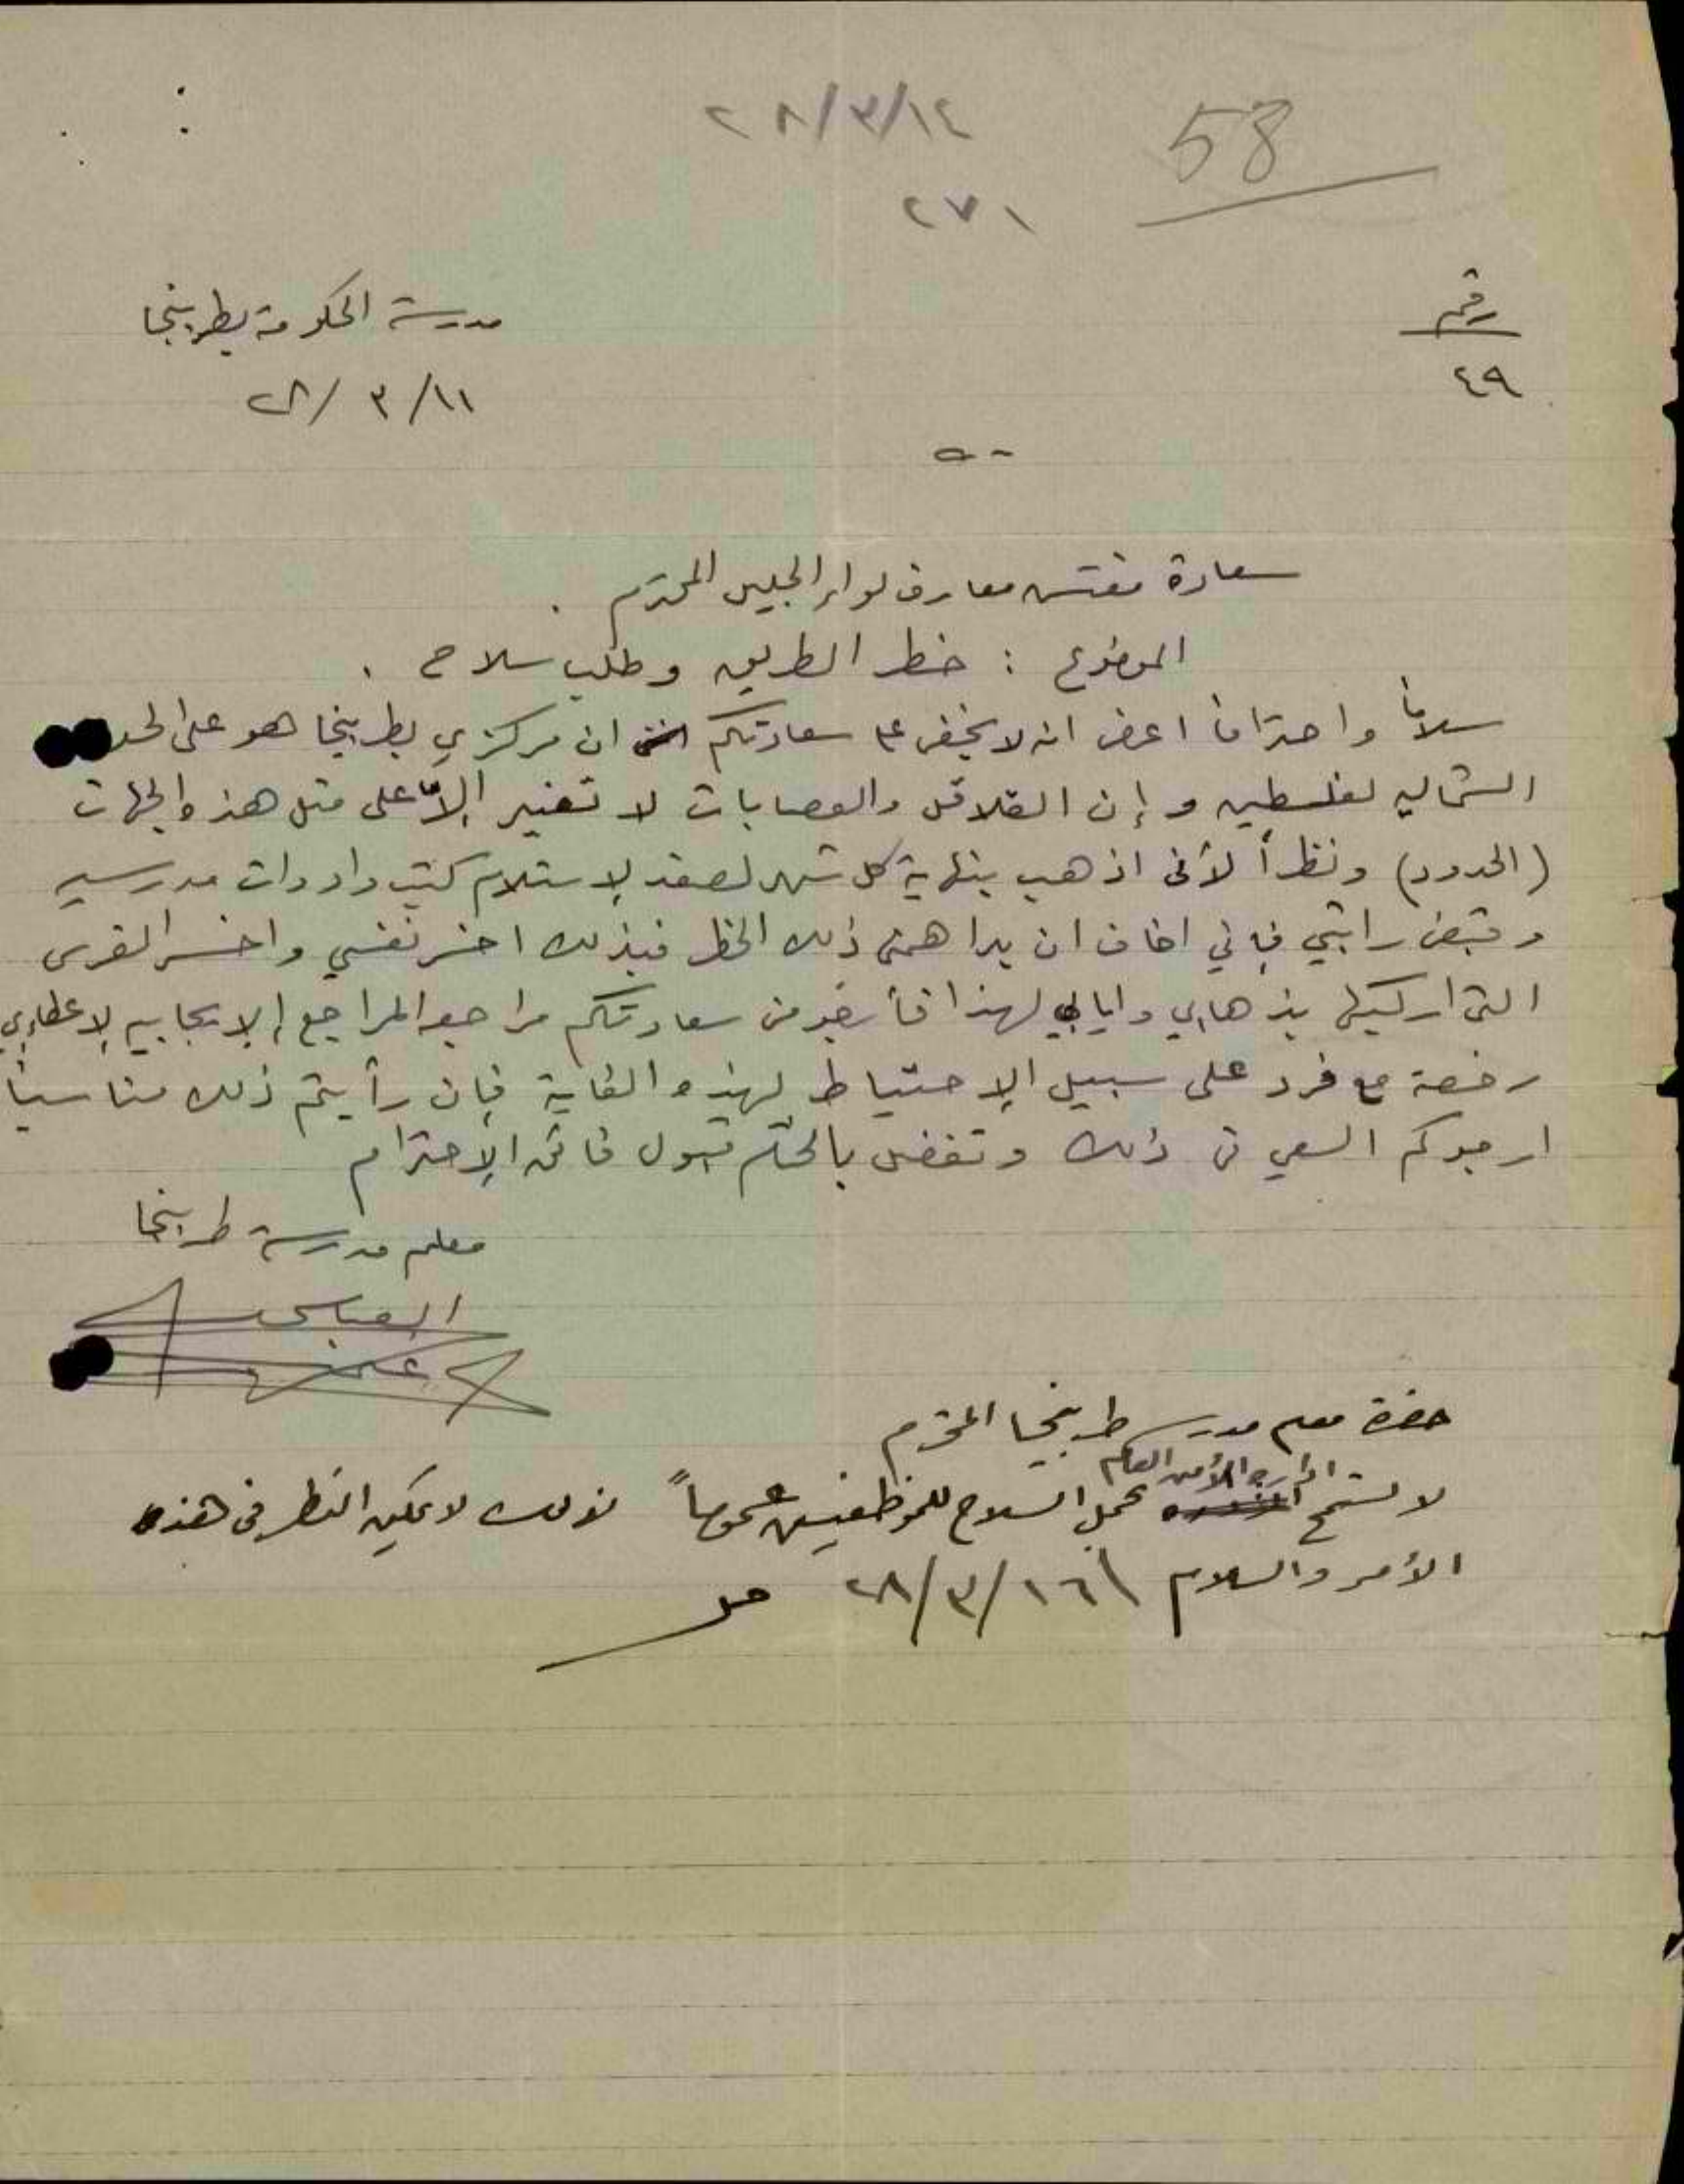 ٢٨/٣/١٤
58
٢٧١
رقم
٤٩
مدرسة الحكومة بطربيخا
٢٨/٣/١١
سعادة مفتش معارف لواء الجليل المحترم .
الموضوع : خطر الطريق وطلب سلاح .
سلاماً واحتراماً اعرض انه لا يخفى على سعادتكم ان مركزي بطربيخا هو على الحد
الشماليه لفلسطين و إن القلاقل والعصابات لا تغير إلاّ على مثل هذه الجهات
(الحدود) ونظراً لأنى اذهب بنهاية كل شهر لصفد لإستلام كتب وادوات مدرسيه
وقبض راتبي فإني اخاف ان يداهمنى ذلك الخطر فبذلك اخسر نفسي واخسر الفرس
التى اركبها بذهابي وايابي لهذا فأرجو من سعادتكم مراجعة المراجع الإيجابيه لإعطاءي
رخصة مع فرد على سبيل الإحتياط لهذه الغاية فإن رأيتم ذلك مناسباً
ارجوكم السعي فى ذلك وتفضل بالختام قبول فائق الإحترام
معلم مدرسة طربيخا
العباسى
حضرة معلم مدرسة طربيخا المحترم
لا تسمح اداره الأمن العام بحمل السلاح للموظفين عموماً لذلك لا يمكن النظر فى هذه
الأمر والسلام \ ٢٨/٣/١٦